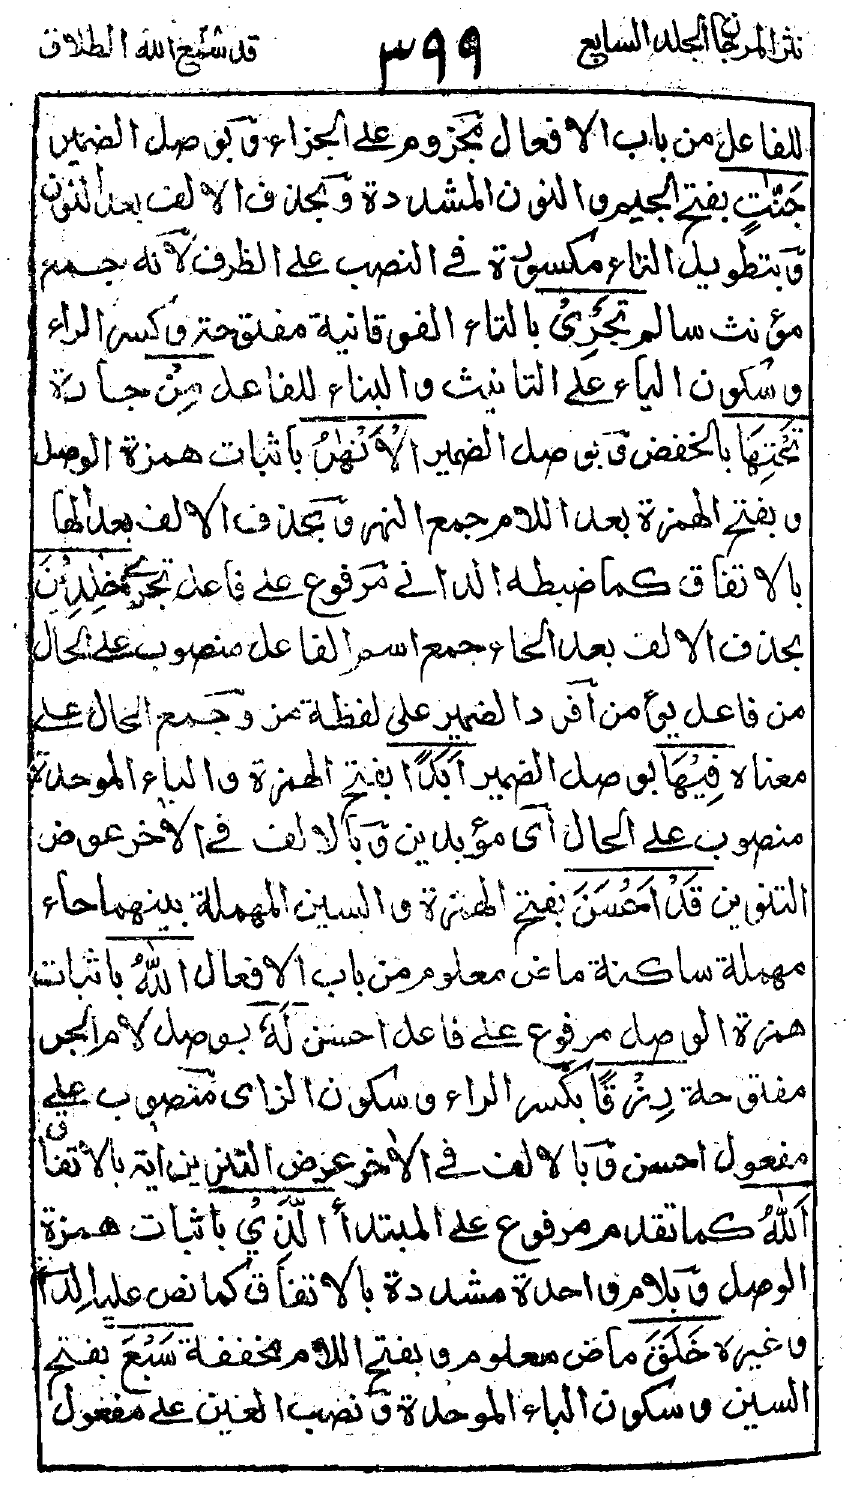 نثر المرجان المجلد السابع ٣٩٩ قد سمع الله الطلاق
للفاعل من باب الافعال مجزوم على الجزاء وبوصل الضمير
جَنّٰتٍ بفتح الجيم والنون المشددة وبحذف الالف بعد النون
وبتطويل التاء مكسورة في النصب على الظرف لانه جمع
مؤنث سالم تَجْرِيْ بالتاء الفوقانية مفتوحة وكسر الراء
وسكون الياء على التانيث والبناء للفاعل مِنْ جارة
تَحْتِهَا بالخفض وبوصل الضمير الْاَنْهٰرُ باثبات همزة الوصل
وبفتح الهمزة بعد اللام جمع النهر وبحذف الالف بعد الهاء
بالاتفاق كما ضبطه الداني مرفوع على فاعل تجري خٰلِدِيْنَ
بحذف الالف بعد الخاء جمع اسم الفاعل منصوب على الحال
من فاعل يؤمن أفرد الضمير على لفظة من وجمع الحال على
معناه فِيْهَا بوصل الضمير اَبَدًا بفتح الهمزة والباء الموحدة
منصوب على الحال أى مؤبدين وبالالف في الآخر عوض
التنوين قَدْ اَحْسَنَ بفتح الهمزة والسين المهملة بينهما حاء
مهملة ساكنة ماض معلوم من باب الافعال اللّٰهُ باثبات
همزة الوصل مرفوع على فاعل احسن لَهٗ بوصل لام الجر
مفتوحة رِزْقًا بكسر الراء وسكون الزاى منصوب على
مفعول احسن وبالالف في الآخر عوض التنوين آية بالاتفاق
اَللّٰهُ كما تقدم مرفوع على المبتدأ الَّذِيْ باثبات همزة
الوصل وبلام واحدة مشددة بالاتفاق كما نص عليه الدانى
وغيره خَلَقَ ماض معلوم وبفتح اللام مخففة سَبْعَ بفتح
السين وسكون الباء الموحدة ونصب العين على مفعول